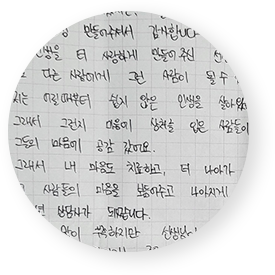 만들어주셔서 감사합니다
인생을 더 사랑하게 만들어 주신
다른 사람에게 그런 사람이 될 수
저는 어릴 때부터 쉽지 않은 인생을 살아왔
그래서 그런지 마음이 상처를 입은 사람들이
그들의 마음이 공감 갔어요.
그래서 내 마음도 치료하고, 더 나아가
사람들의 마음을 보듬어주고 나아지게
상담사가 돼갑니다.
많이 부족하지만 선생님이